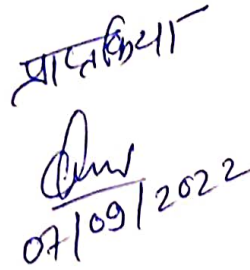 प्राप्त किया
07/09/2022